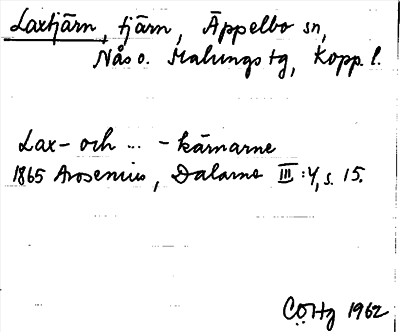 Laxtjärn, tjärn, Äppelbo sn,
Nås o. Malungs tg, Kopp. l.
Lax- och ... -kärnarne
1865 Arosenius, Dalarne III:4, s. 15.
CÖHg 1962